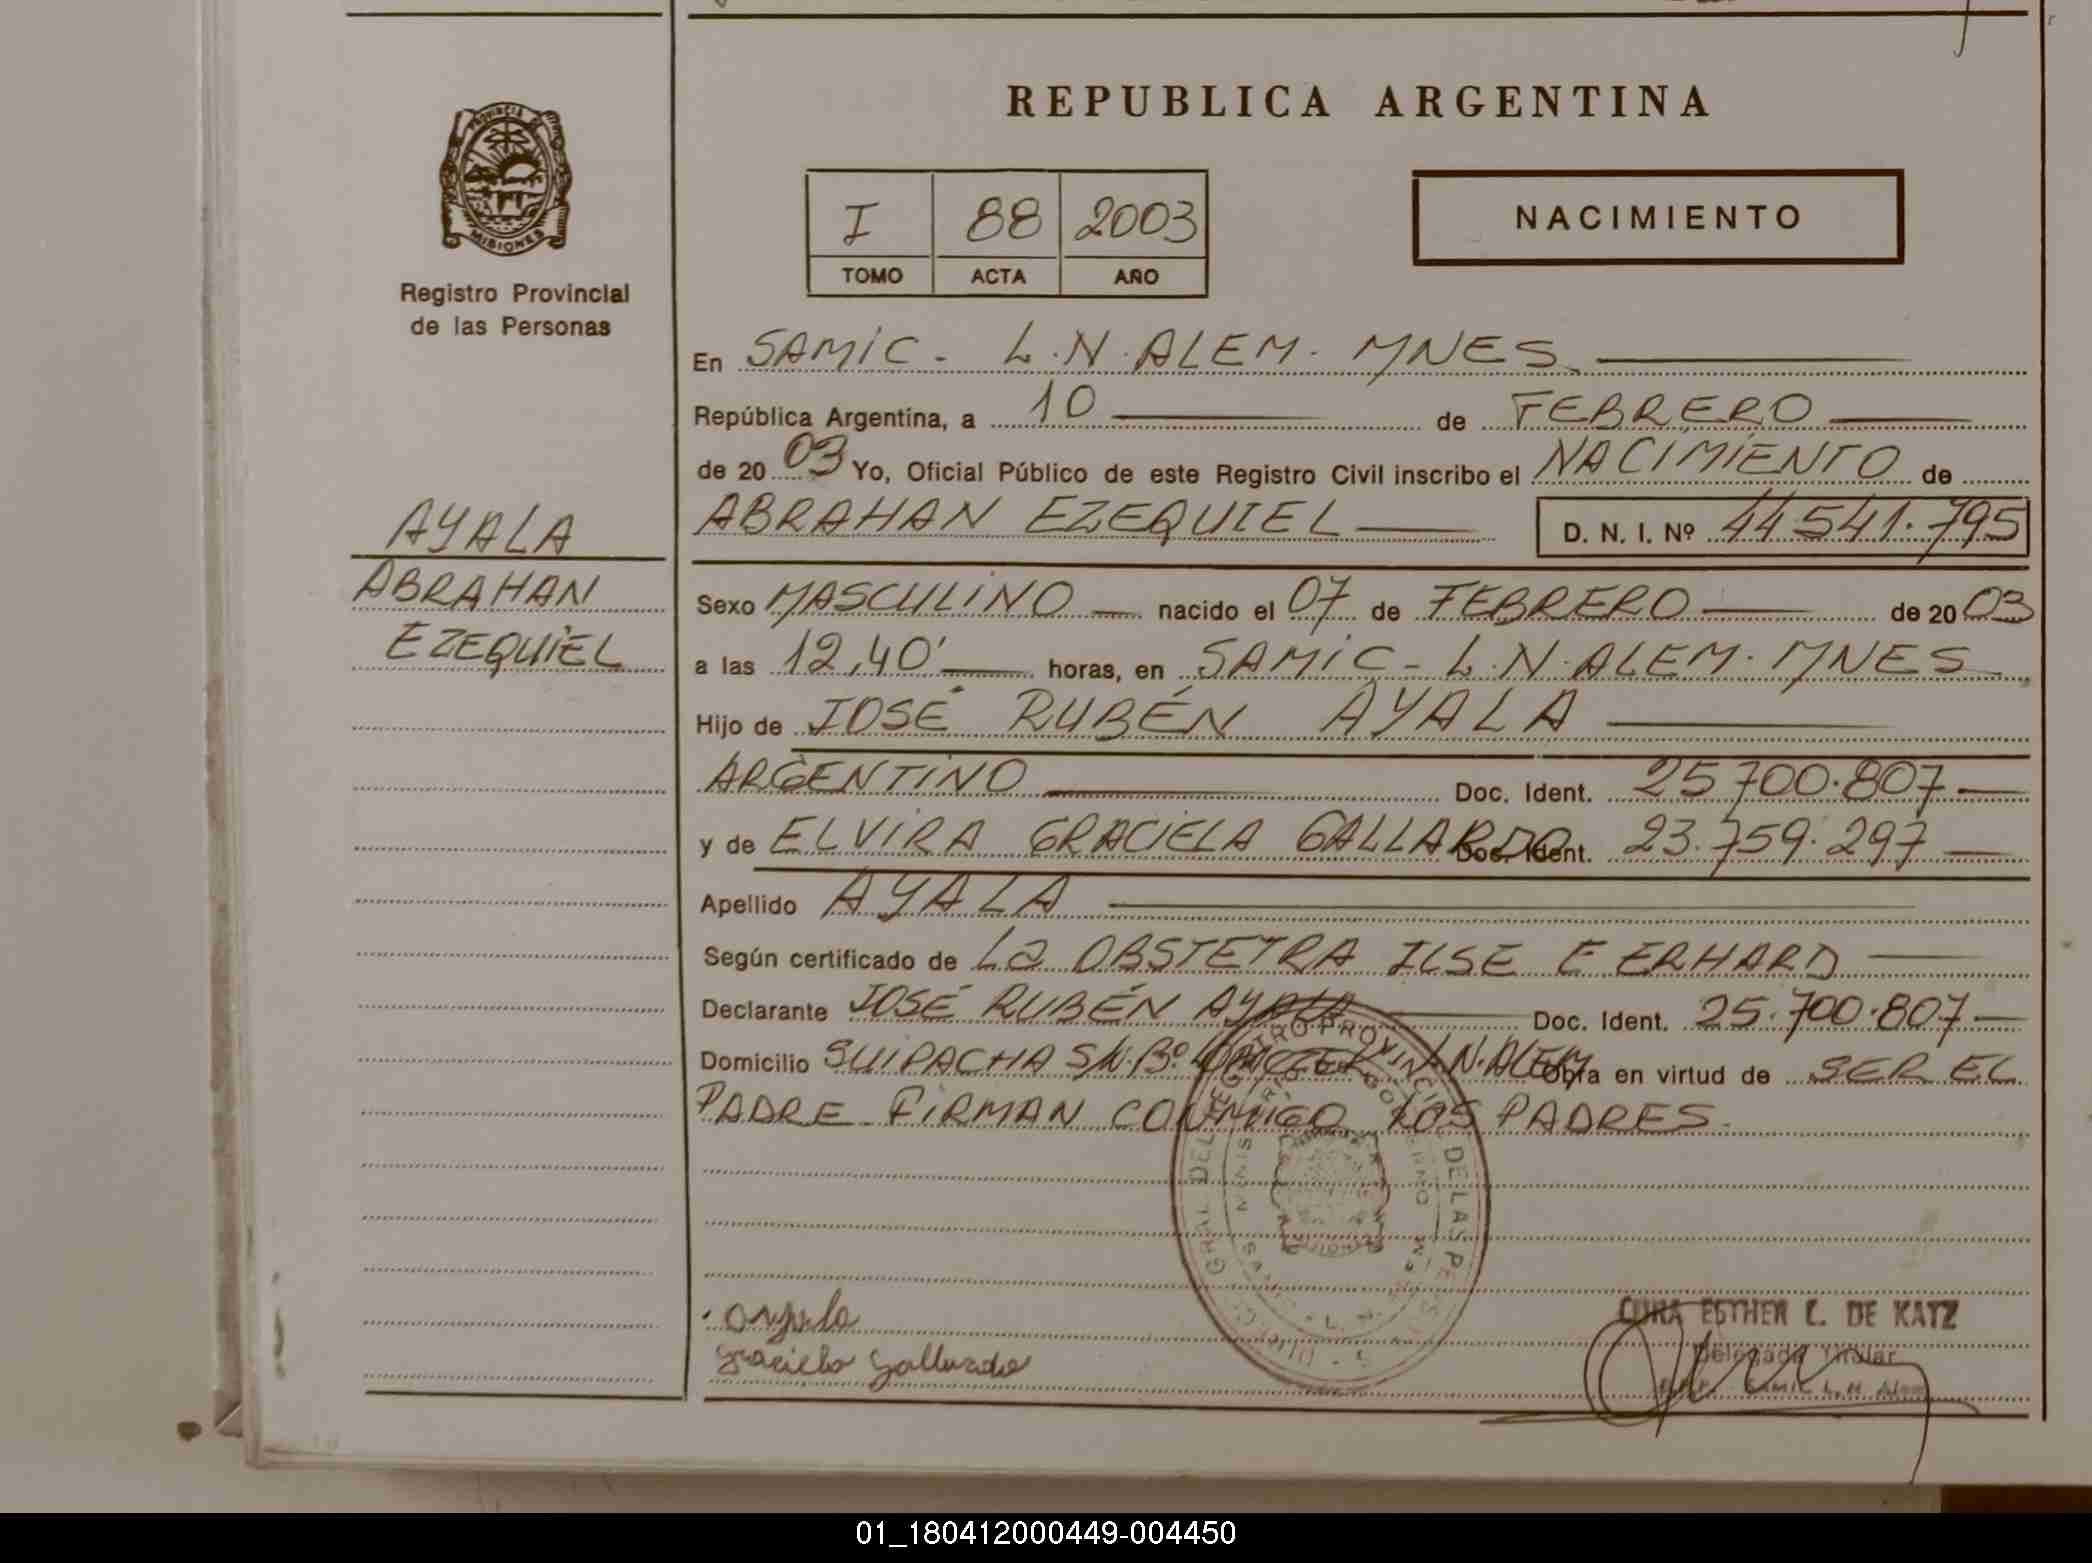 REPUBLICA ARGENTINA
PROVINCIA DE
MISIONES
Registro Provincial
de las Personas
I 88 2003
TOMO ACTA AÑO
NACIMIENTO
En SAMIC - L.N.ALEM. MNES
República Argentina, a 10 de FEBRERO
de 20 03 Yo, Oficial Público de este Registro Civil inscribo el NACIMIENTO de
ABRAHAN EZEQUIEL D. N. I. Nº 44.541.795
AYALA
ABRAHAN
EZEQUIEL
Sexo MASCULINO nacido el 07 de FEBRERO de 20 03
a las 12,40' horas, en SAMIC - L.N.ALEM. MNES
Hijo de JOSÉ RUBÉN AYALA
ARGENTINO Doc. Ident. 25.700.807
y de ELVIRA GRACIELA GALLARDO Doc. Ident. 23.759.297
Apellido AYALA
Según certificado de La OBSTETRA ILSE E ERHARD
Declarante JOSÉ RUBÉN AYALA Doc. Ident. 25.700.807
Domicilio SUIPACHA S/N.Bº L.N.ALEM Obra en virtud de SER EL
PADRE FIRMAN CONMIGO LOS PADRES.
REGISTRO PROVINCIAL DE LAS PERSONAS
Ayala
Graciela Gallardo
ESTHER L. DE KATZ
Delegada Titular
Samic L.N. Alem
01_180412000449-004450